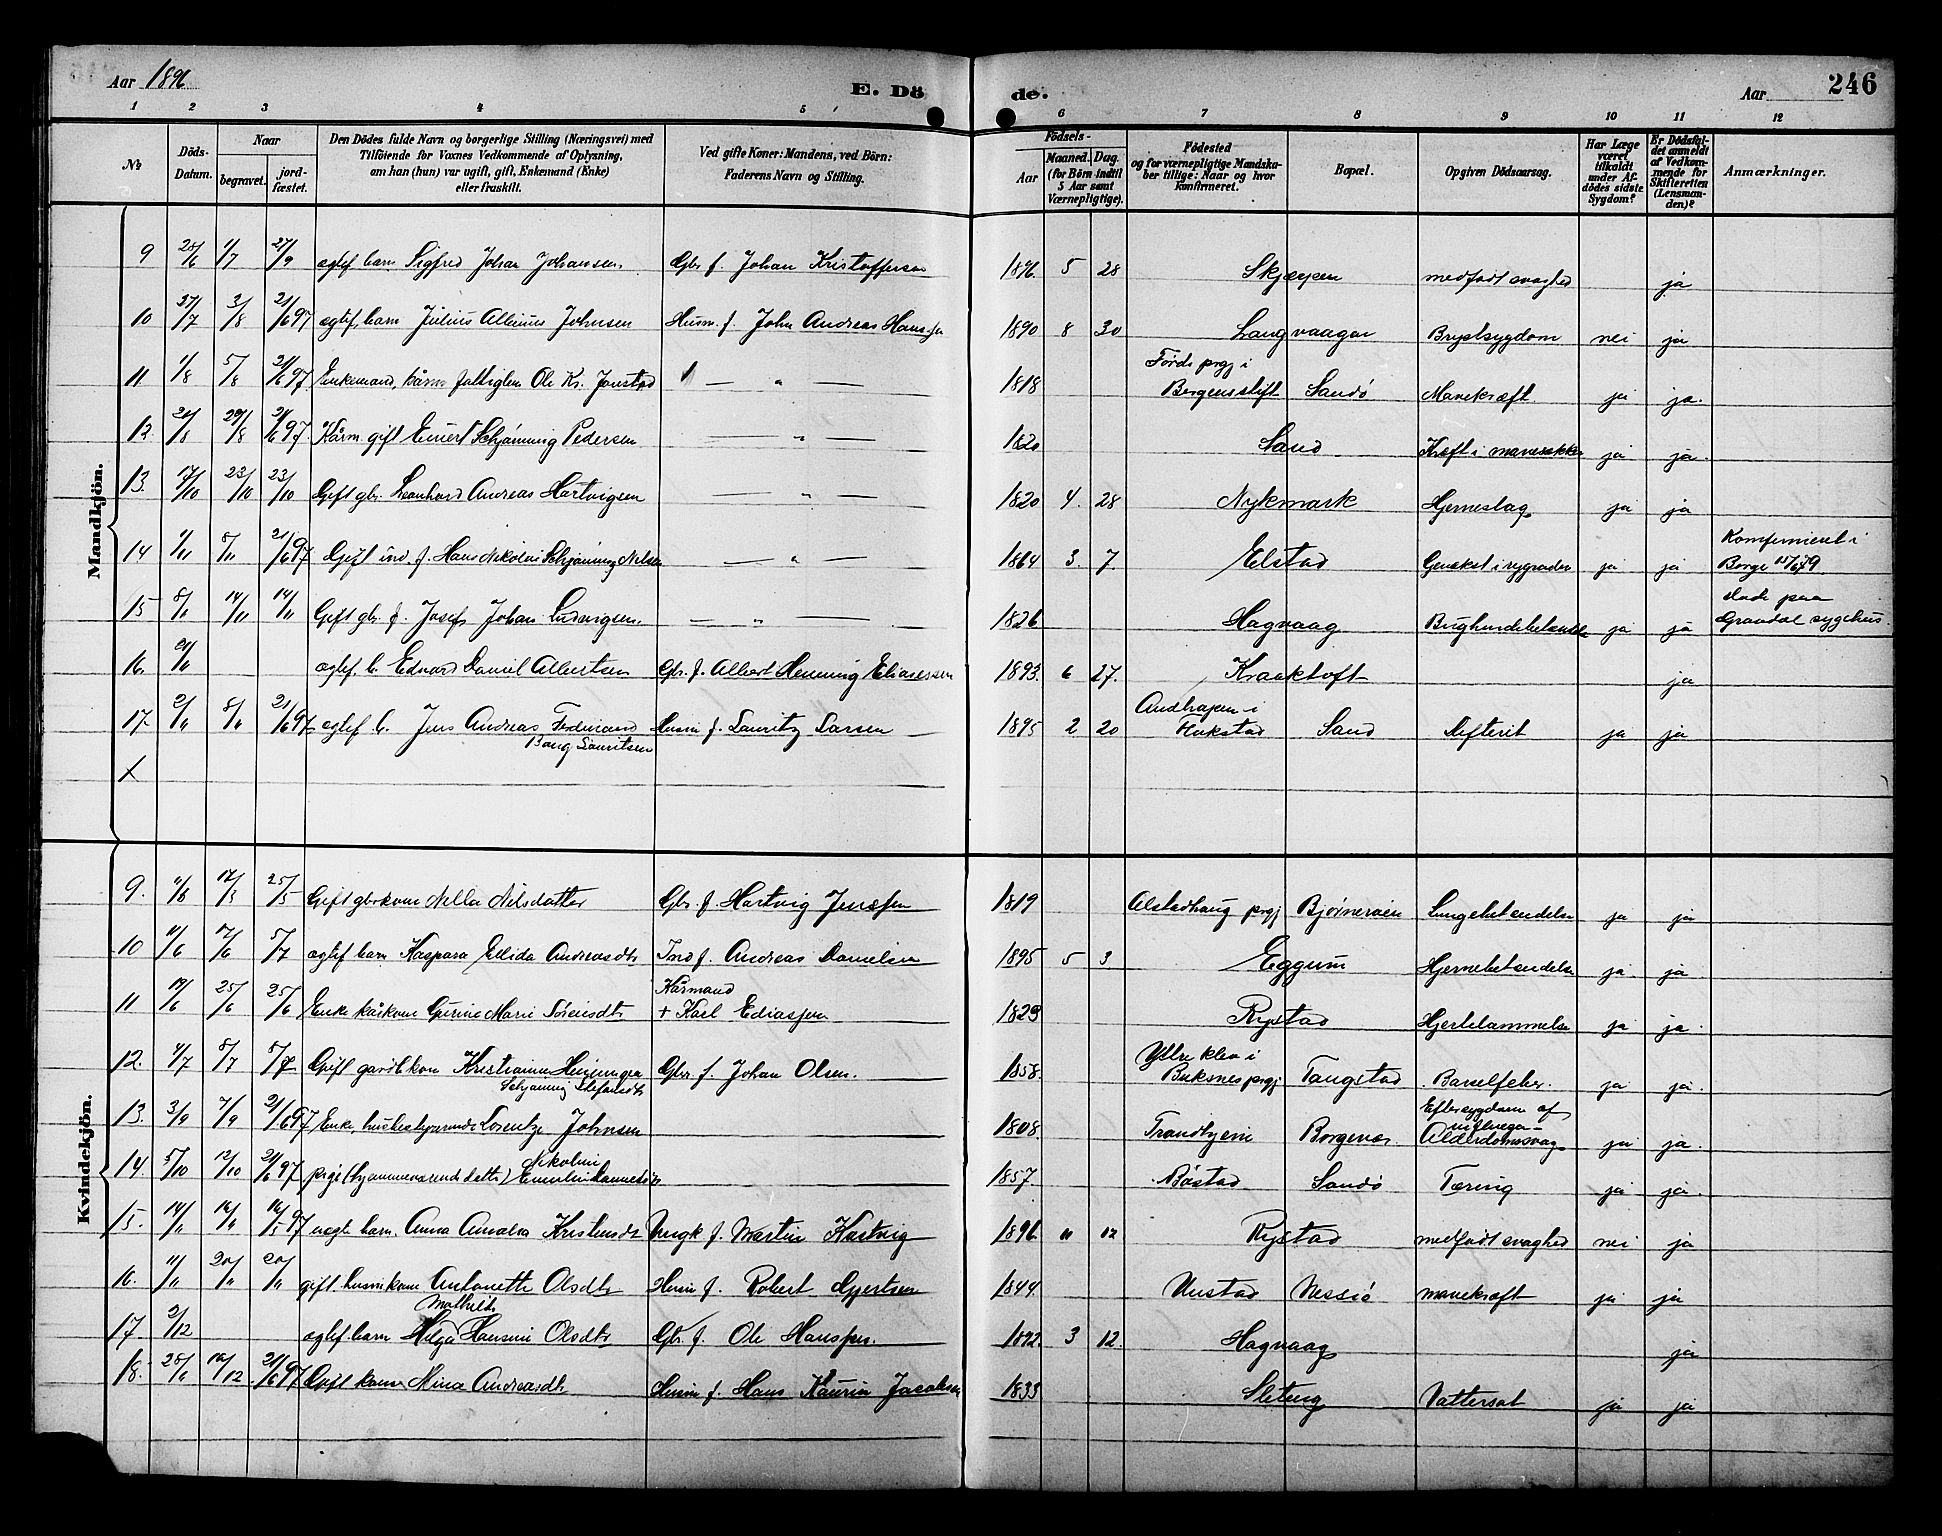 Aar 1896
E. Dö de.
Aar 246
1 2 3 4 5 6 7 8 9 10 11 12
№ Döds-Datum. Naar begravet. jord-fæstet. Den Dödes fulde Navn og borgerlige Stilling (Næringsvei) med Tilföiende for Voxnes Vedkommende af Oplysning, om han (hun) var ugift, gift, Enkemand (Enke) eller fraskilt. Ved gifte Koner: Mandens, ved Börn: Faderens Navn og Stilling. Födsels- Aar Maaned. Dag. (for Börn indtil 5 Aar samt Værnepligtige). Födested og for værnepligtige Mandska-ber tillige: Naar og hvor konfirmeret. Bopæl. Opgiven Dödsaarsag. Har Læge været tilkaldt under Af-dödes sidste Sygdom? Er Dödsfal-det anmeldt af Vedkom-mende for Skifteretten (Lensman-den)? Anmærkninger.
Mandkjön.
9 1/7 27/9 ægtef. barn Sigfred Johan Johansen Gbr. f. Johan Kristoffersen 1896 5 28 Skjærpen medfödt svaghed ja
10 31/7 3/8 21/6 97 ægtef. barn Julius Johnsen Husm. f. John Andreas Hansen 1890 8 30 Langvaagen Brystsygdom nei ja
11 1/8 5/8 21/6 97 Enkemand, Ole Kr. Jonstad — " — 1818 prgj i Bergensstift Sandö Mavekræft ja ja.
12 29/8 21/6 97 Kårm. gift Schjönning Pedersen — " — 1820 Sand Kræft i mavesækken ja ja.
13. 17/10 23/10 23/10 Gift gbr. Leonhard Andreas Hartvigsen — " — 1820 4. 28 Nykmark Hjerneslag ja ja
14 1/11 5/11 21/6 97 Gift ind. f. Hans Nikolai Schjönning Nilsen — " — 1864 3. 7. Elstad ja ja Konfirmeret i Borge 15/6 79
15 8/11 14/11 14/11 Gift gbr. f. Josef Johan Ludvigsen — " — 1826 Hagvaag ja ja döde paa Gravdal sygehus
16. ægtef. b. Edvard Daniel Albertsen Gbr. f. Albert Henning Eliasessen 1893. 6 27. Kraaktoft ja
17. 2/11 8/11 21/6 97 ægtef b. Jens Andreas Ferdinand Bang Lauritsen Husm f. Lauritz Larsen 1895 2 20 i Sand Difterit ja ja
X
Kvindekjön.
9. 17/5 25/5 Gift gbrkone Nella Nilsdatter Gbr. f. Hartvig Jensen 1819 Alstadhaug prgj Lungebetændelse ja ja
10 11/6 17/6 5/7 ægtef barn Kaspara Ellida Andreasdtr Ind f. Andreas Danielsen 1895 5 3 Eggum Hjernebetændelse ja ja
11 19/6 25/6 25/6 Enke kårkone Gurine Marie Sörensdtr Kårmand + Karl Ediassen 1829 Rystad Hjertelammelse ja ja.
12. 4/7 5/7 Gift gårdbkone Kristianna Schjönning Stefansdtr Gbr. f. Johan Olsen. 1858. Yttreklev i Buksnes prgj Tangstad Barselfeber. ja ja.
13. 3/9 7/9 21/6 97 Enke, Lorentze Johnsen 1808. Borgevær Eftersygdom af influenza- Alderdomssvag ja ja.
14. 5/10 12/10 21/6 97 pige (hjemmeværende datter) Nikoline 1857. Böstad Sandö Tæring ja ja.
15. 14/11 16/11 uægte barn. Anna Amalia Kristensdtr Ungk f. Martin Hartvig 1896. 11 12 Rystad medfödt svaghed nei ja
16. 11/11 20/11 20/11 gift husmkone Antonette Olsdtr Husm f. Robert Gjertsen 1844. Unstad Nessiö mavekræft ja ja
17. 2/12 ægtef barn Mathilde Helga Hansine Olsdtr Gbr. f. Ole Hanssen. 1892. 3 12. Hagvaag ja
18. 16/12 21/6 97 Gift kone Nina Andreasdtr Husm f. Hans Kaurin Jacobsen 1833 Sleteng Vattersot ja ja